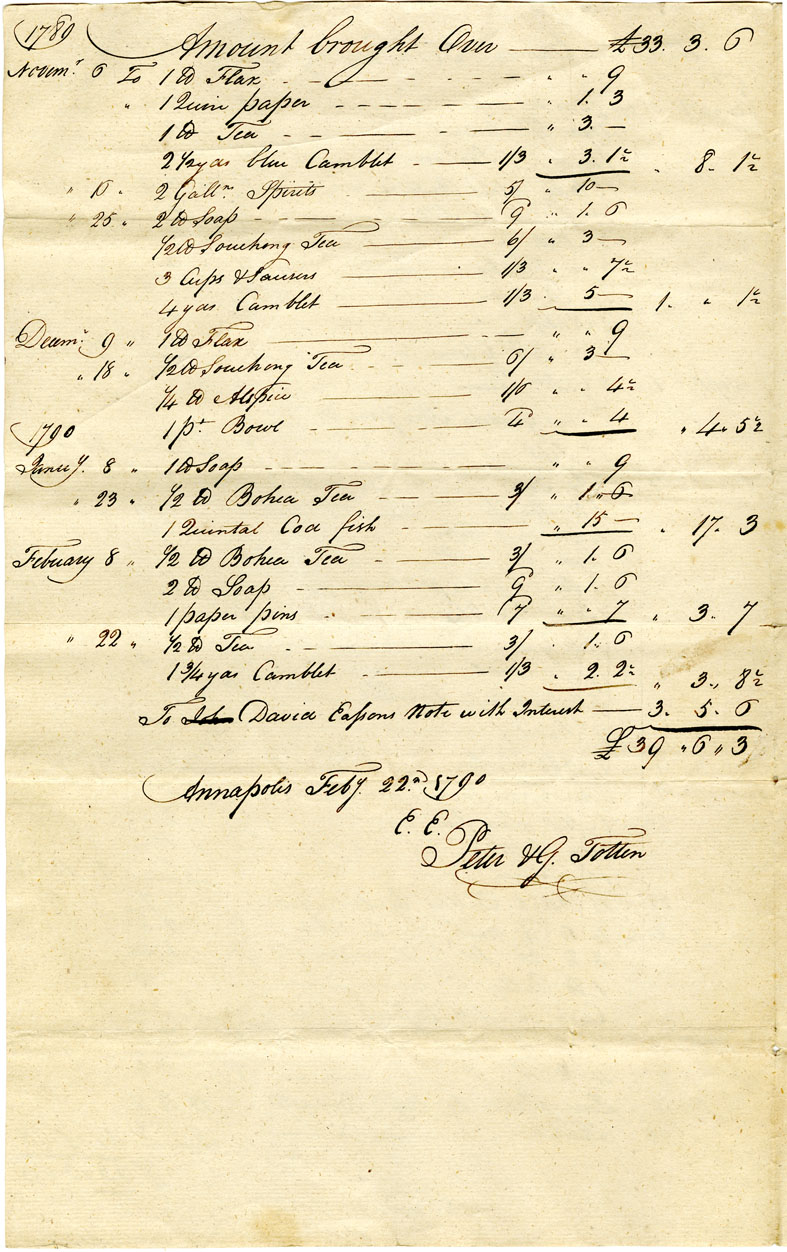 1789 Amount brought Over — £33. 3. 6
Novemr. 6 To 1 lb Flax " " 9
" 1 Quire paper " 1. 3
1 lb Tea " 3. —
2 1/2 yds blue Camblet — 1/3 " 3. 1 1/2 " 8. 1 1/2
" 15 " 2 Galln. Spirits 5/ " 10 —
" 25 " 2 lb Soap 9 " 1. 6
1/2 lb Souchong Tea — 6/ " 3 —
3 Cups & Saucers — 1/3 " " 7 1/2
4 yds Camblet — 1/3 . 5 — 1. " 1 1/2
Decemr. 9 " 1 lb Flax — " " 9
" 18 " 1/2 lb Souchong Tea — 6/ " 3 —
1/4 lb Alspice — 1/6 " " 4 1/2
1790 1 pt. Bowl — 4d " " 4 " 4 " 5 1/2
Januy. 8 " 1 lb Soap " " 9
" 23 " 1/2 lb Bohea Tea — 3/ " 1 " 6
1 Quintal Cod fish — " 15 — " 17. 3
February 8 " 1/2 lb Bohea Tea — 3/ " 1. 6
2 lb Soap — 9 " 1. 6
1 paper pins — 7 " " 7 " 3. 7
" 22 " 1/2 lb Tea — 3/ . 1. 6
1 3/4 yds Camblet — 1/3 " 2. 2 1/2 " 3 " 8 1/2
To David Eassons Note with Interest — 3. 5. 6
£39 " 6 " 3
Annapolis Feby. 22d. 1790
E. E.
Peter & G. Totten